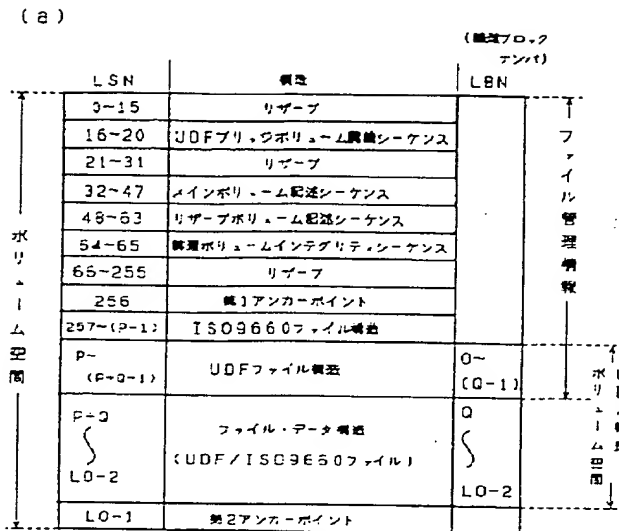 (a)
(論理ブロック
ナンバ)
LSN 構造 LBN
0~15 リザーブ
16~20 UDFブリッジボリューム認識シーケンス
21~31 リザーブ
32~47 メインボリューム記述シーケンス
48~63 リザーブボリューム記述シーケンス
64~65 論理ボリュームインテグリティシーケンス
66~255 リザーブ
256 第1アンカーポイント
257~(P-1) ISO9660ファイル構造
P~
(P+Q-1) UDFファイル構造 0~
(Q-1)
P+Q
LO-2 ファイル・データ構造
(UDF/ISO9660ファイル) Q
LO-2
LO-1 第2アンカーポイント
ボリューム空間
ファイル管理情報
ボリューム空間